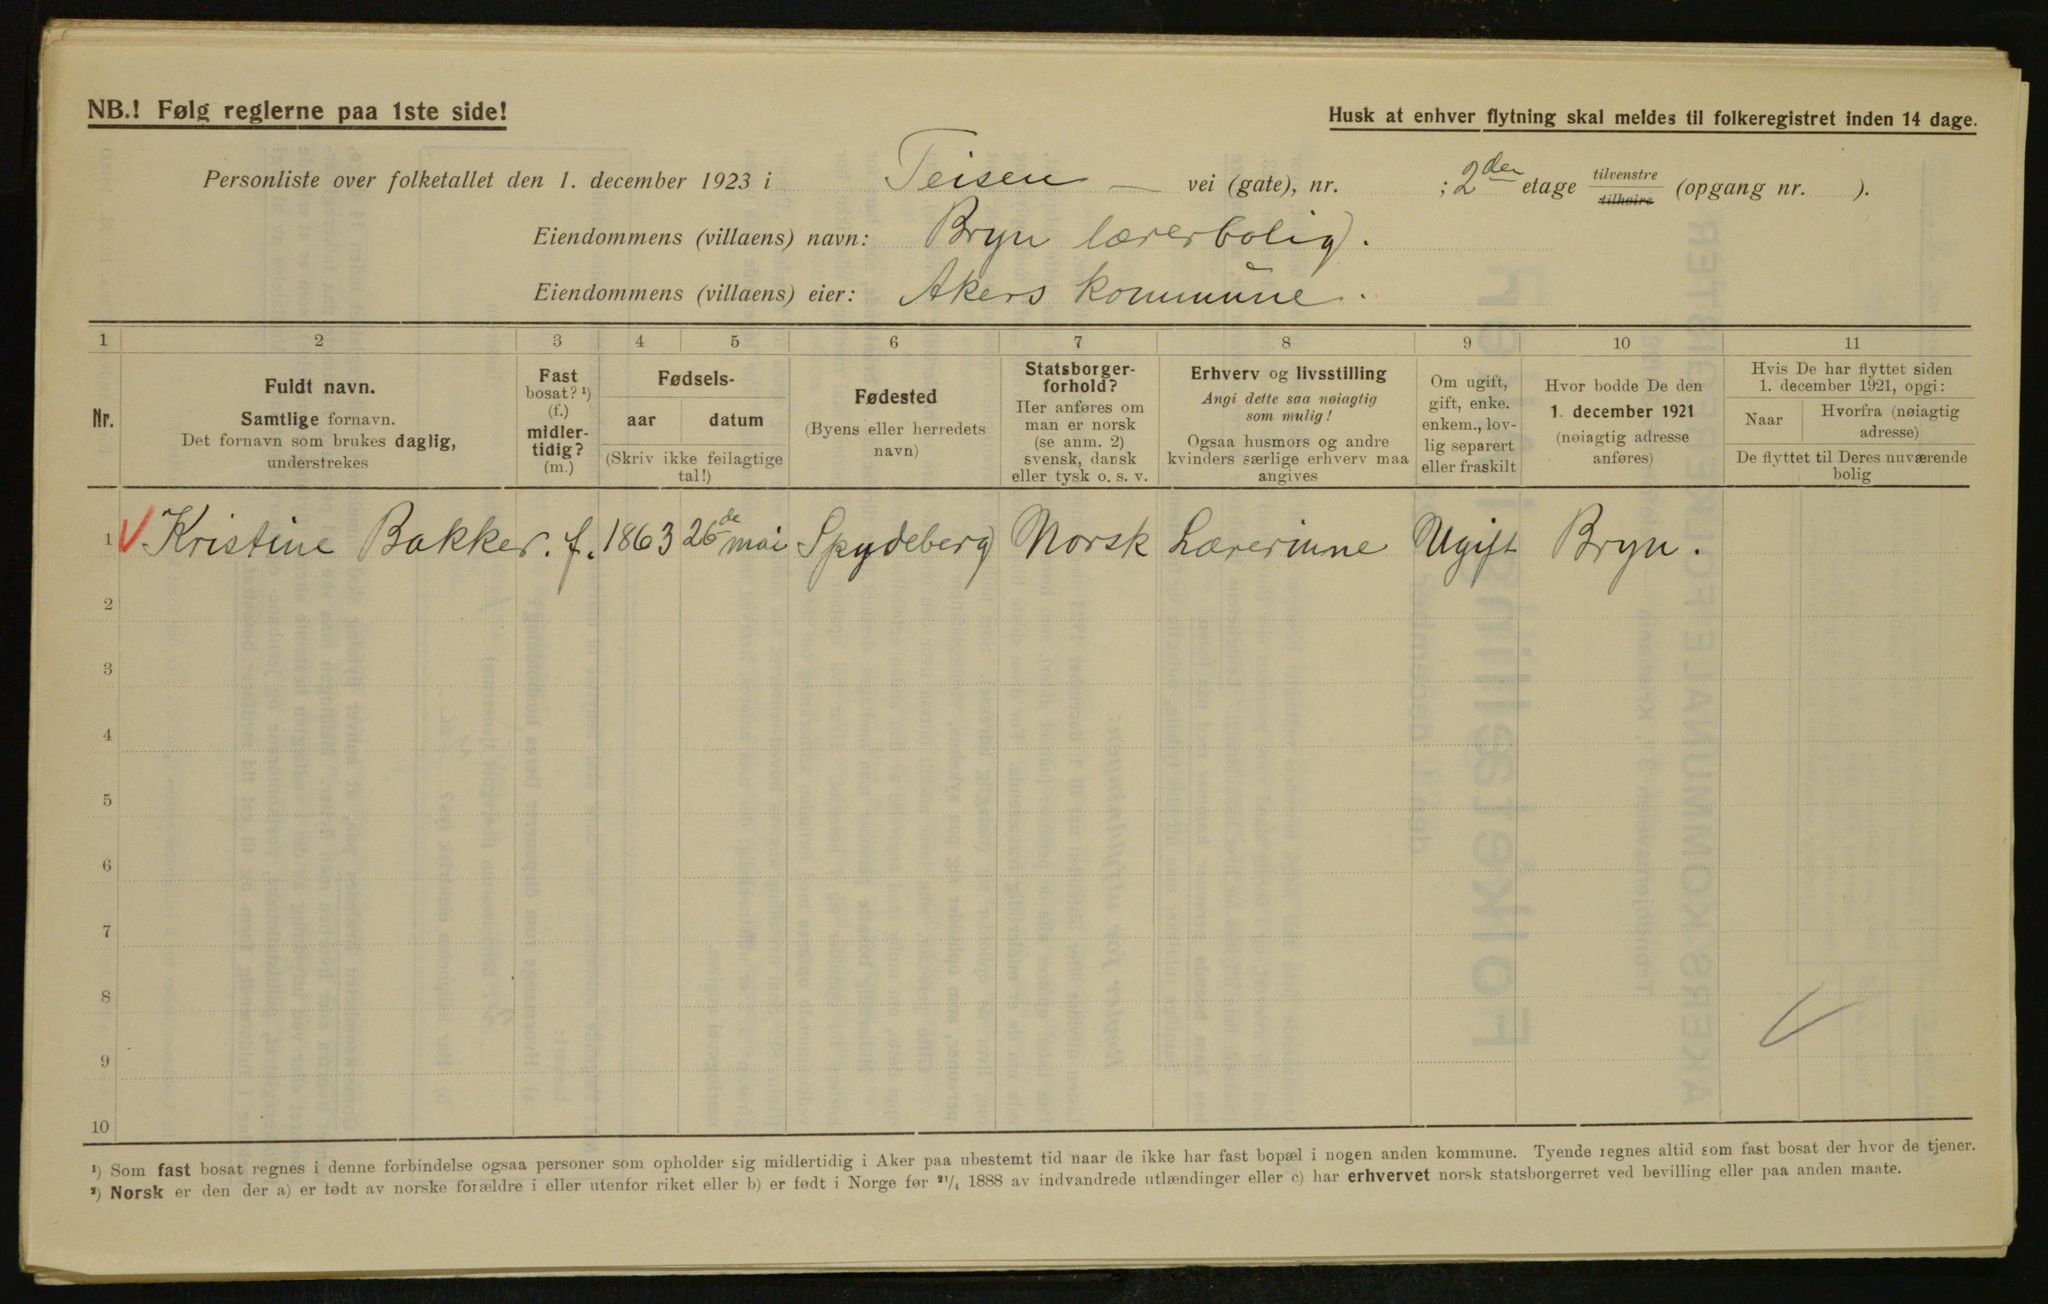 NB.! Følg reglerne paa 1ste side!
Husk at enhver flytning skal meldes til folkeregistret inden 14 dage.
Personliste over folketallet den 1. december 1923 i Teisen — vei (gate), nr. ; 2den etage tilvenstre tilhøire (opgang nr. ).
Eiendommens (villaens) navn: Bryn lærerbolig.
Eiendommens (villaens) eier: Akers kommune.
1 2 3 4 5 6 7 8 9 10 11
Nr.
Fuldt navn.
Samtlige fornavn.
Det fornavn som brukes daglig,
understrekes
Fast
bosat? ¹)
(f.)
midler-
tidig?
(m.)
Fødsels-
aar datum
(Skriv ikke feilagtige
tal!)
Fødested
(Byens eller herredets
navn)
Statsborger-
forhold?
Her anføres om
man er norsk
(se anm. 2)
svensk, dansk
eller tysk o. s. v.
Erhverv og livsstilling
Angi dette saa nøiagtig
som mulig!
Ogsaa husmors og andre
kvinders særlige erhverv maa
angives
Om ugift,
gift, enke.
enkem., lov-
lig separert
eller fraskilt
Hvor bodde De den
1. december 1921
(nøiagtig adresse
anføres)
Hvis De har flyttet siden
1. december 1921, opgi:
Naar
Hvorfra (nøiagtig
adresse)
De flyttet til Deres nuværende
bolig
1 Kristine Bakker. f. 1863 26de mai Spydeberg Norsk Lærerinne Ugift Bryn.
2
3
4
5
6
7
8
9
10
¹) Som fast bosat regnes i denne forbindelse ogsaa personer som opholder sig midlertidig i Aker paa ubestemt tid naar de ikke har fast bopæl i nogen anden kommune. Tyende regnes altid som fast bosat der hvor de tjener.
²) Norsk er den der a) er født av norske forældre i eller utenfor riket eller b) er født i Norge før ²¹/₄ 1888 av indvandrede utlændinger eller c) har erhvervet norsk statsborgerret ved bevilling eller paa anden maate.